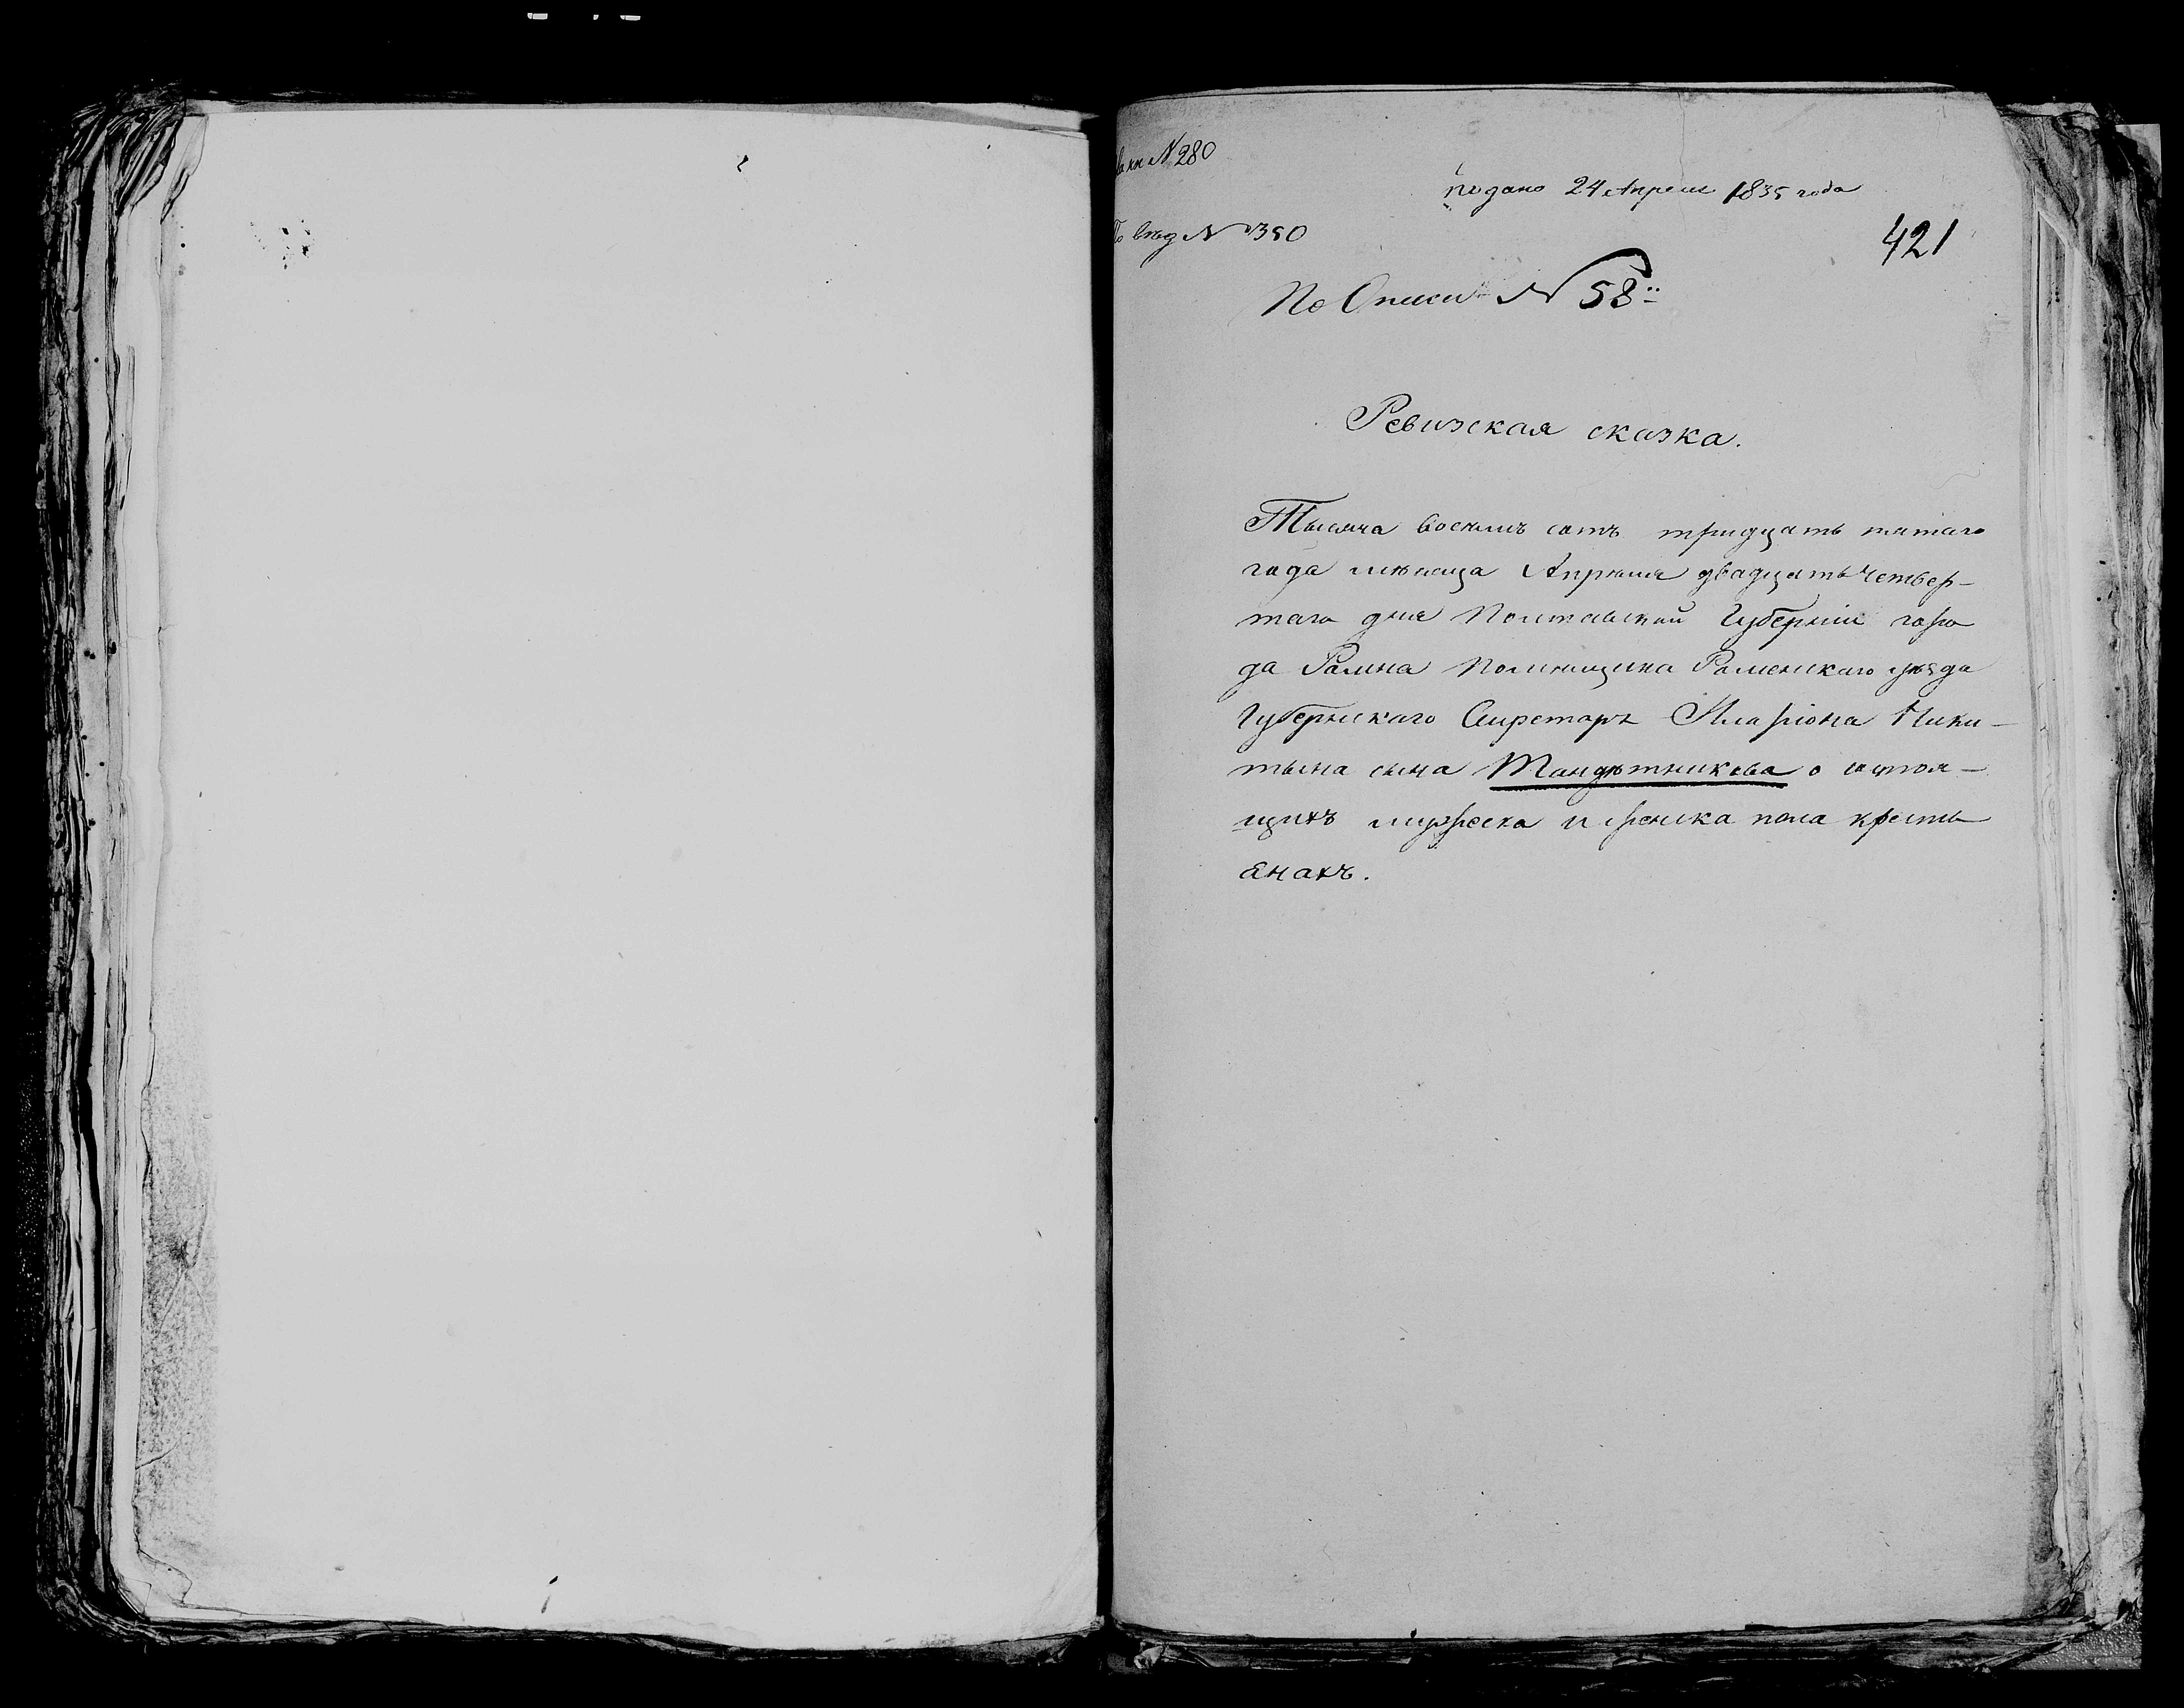 № 280
подано 24 Апреля 1835 года
По вѣд № 350
421
По Описи № 58
Ревизская сказка.
Тысяча восемъ сотъ тридцать пятаго
года мѣсяца Апрѣля двадцать четвер-
таго дня Полтавской Губерніи горо
да Ромна Помѣщика Роменскаго уѣзда
Губернскаго Секретаря Иларіона Ники-
тына сына Тандѣтникова о состоя-
щихъ мужеска и женска пола кресть
янахъ.